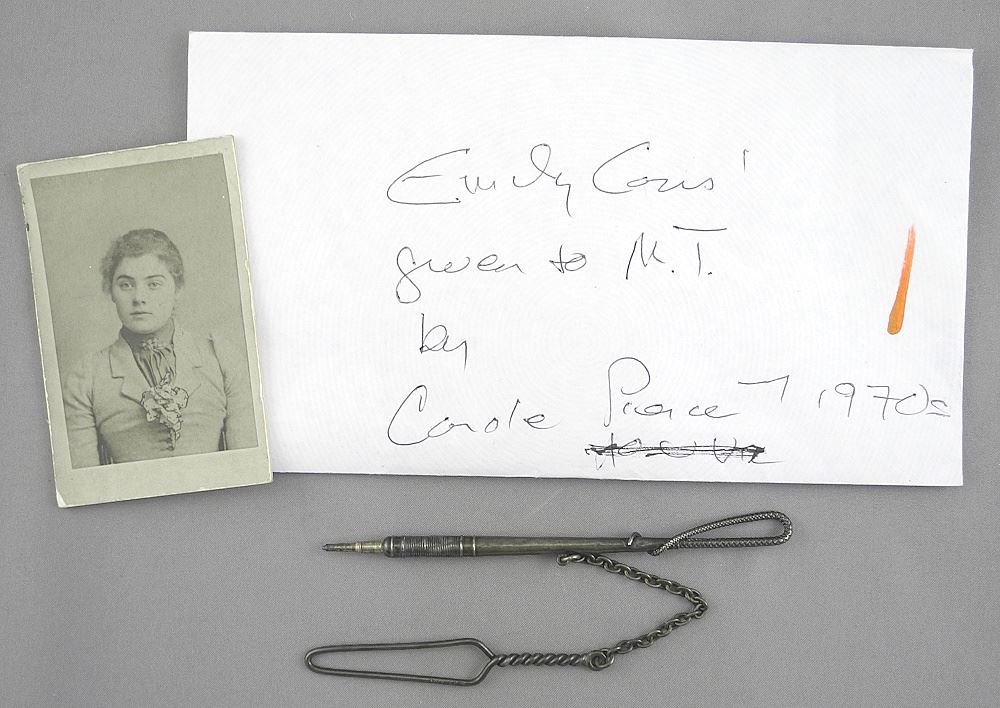 Emily Carrs'
given to M.T.
by
Carole Pearce 1970s